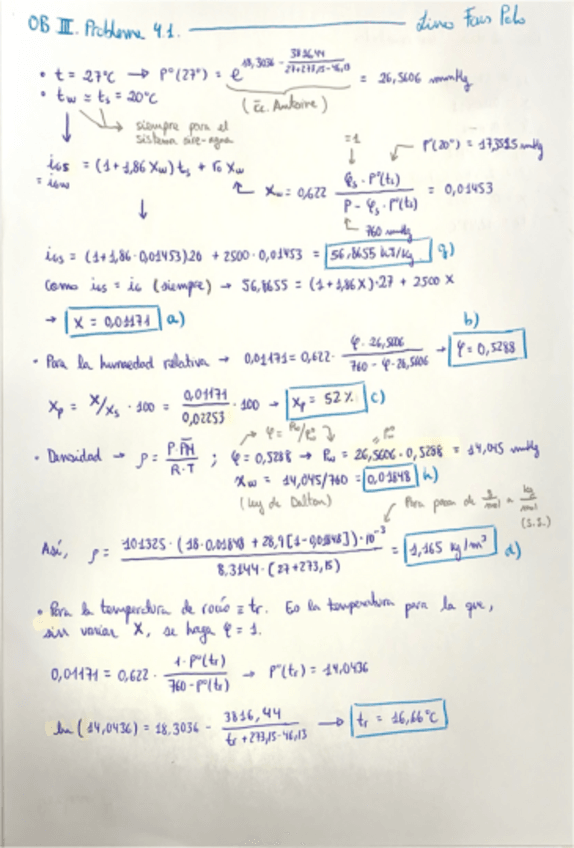 OB III. Problema 4.1.
• t = 27°C → P°(27°) = e^(18,3036 - 3816,44/(27+273,15-46,13)) = 26,5606 mmHg
• tw ≅ ts = 20°C
(Ec. Antoine)
siempre para el sistema aire-agua
=1
P°(20°) = 17,3515 mmHg
iGs = (1+1,86 Xw) ts + r0 Xw
= iGw
Xw = 0,622 φs · P°(ts) / (P - φs · P°(ts)) = 0,01453
760 mmHg
iGs = (1+1,86·0,01453)·20 + 2500·0,01453 = 56,8655 kJ/kg g)
Como iGs = iG (siempre) → 56,8655 = (1+1,86X)·27 + 2500 X
→ X = 0,01171 a)
b)
• Para la humedad relativa → 0,01171 = 0,622 · φ · 26,5606 / (760 - φ · 26,5606) → φ = 0,5288
Xp = X/Xs · 100 = 0,01171/0,02253 · 100 → Xp = 52% c)
→ φ = Pw/P°
P°
• Densidad → ρ = P·PM/(R·T) ; φ = 0,5288 → Pw = 26,5606 · 0,5288 = 14,045 mmHg
xw = 14,045/760 = 0,01848 h)
(Ley de Dalton)
Para pasar de g/mol a kg/mol (S.I.)
Así, ρ = 101325 · (18·0,01848 + 28,9[1-0,01848])·10^-3 / (8,3144·(27+273,15)) = 1,165 kg/m³ d)
• Para la temperatura de rocío ≡ tr. Es la temperatura para la que,
sin variar X, se haga φ = 1.
0,01171 = 0,622 · 1·P°(tr) / (760 - P°(tr)) → P°(tr) = 14,0436
ln(14,0436) = 18,3036 - 3816,44/(tr+273,15-46,13) → tr = 16,66°C